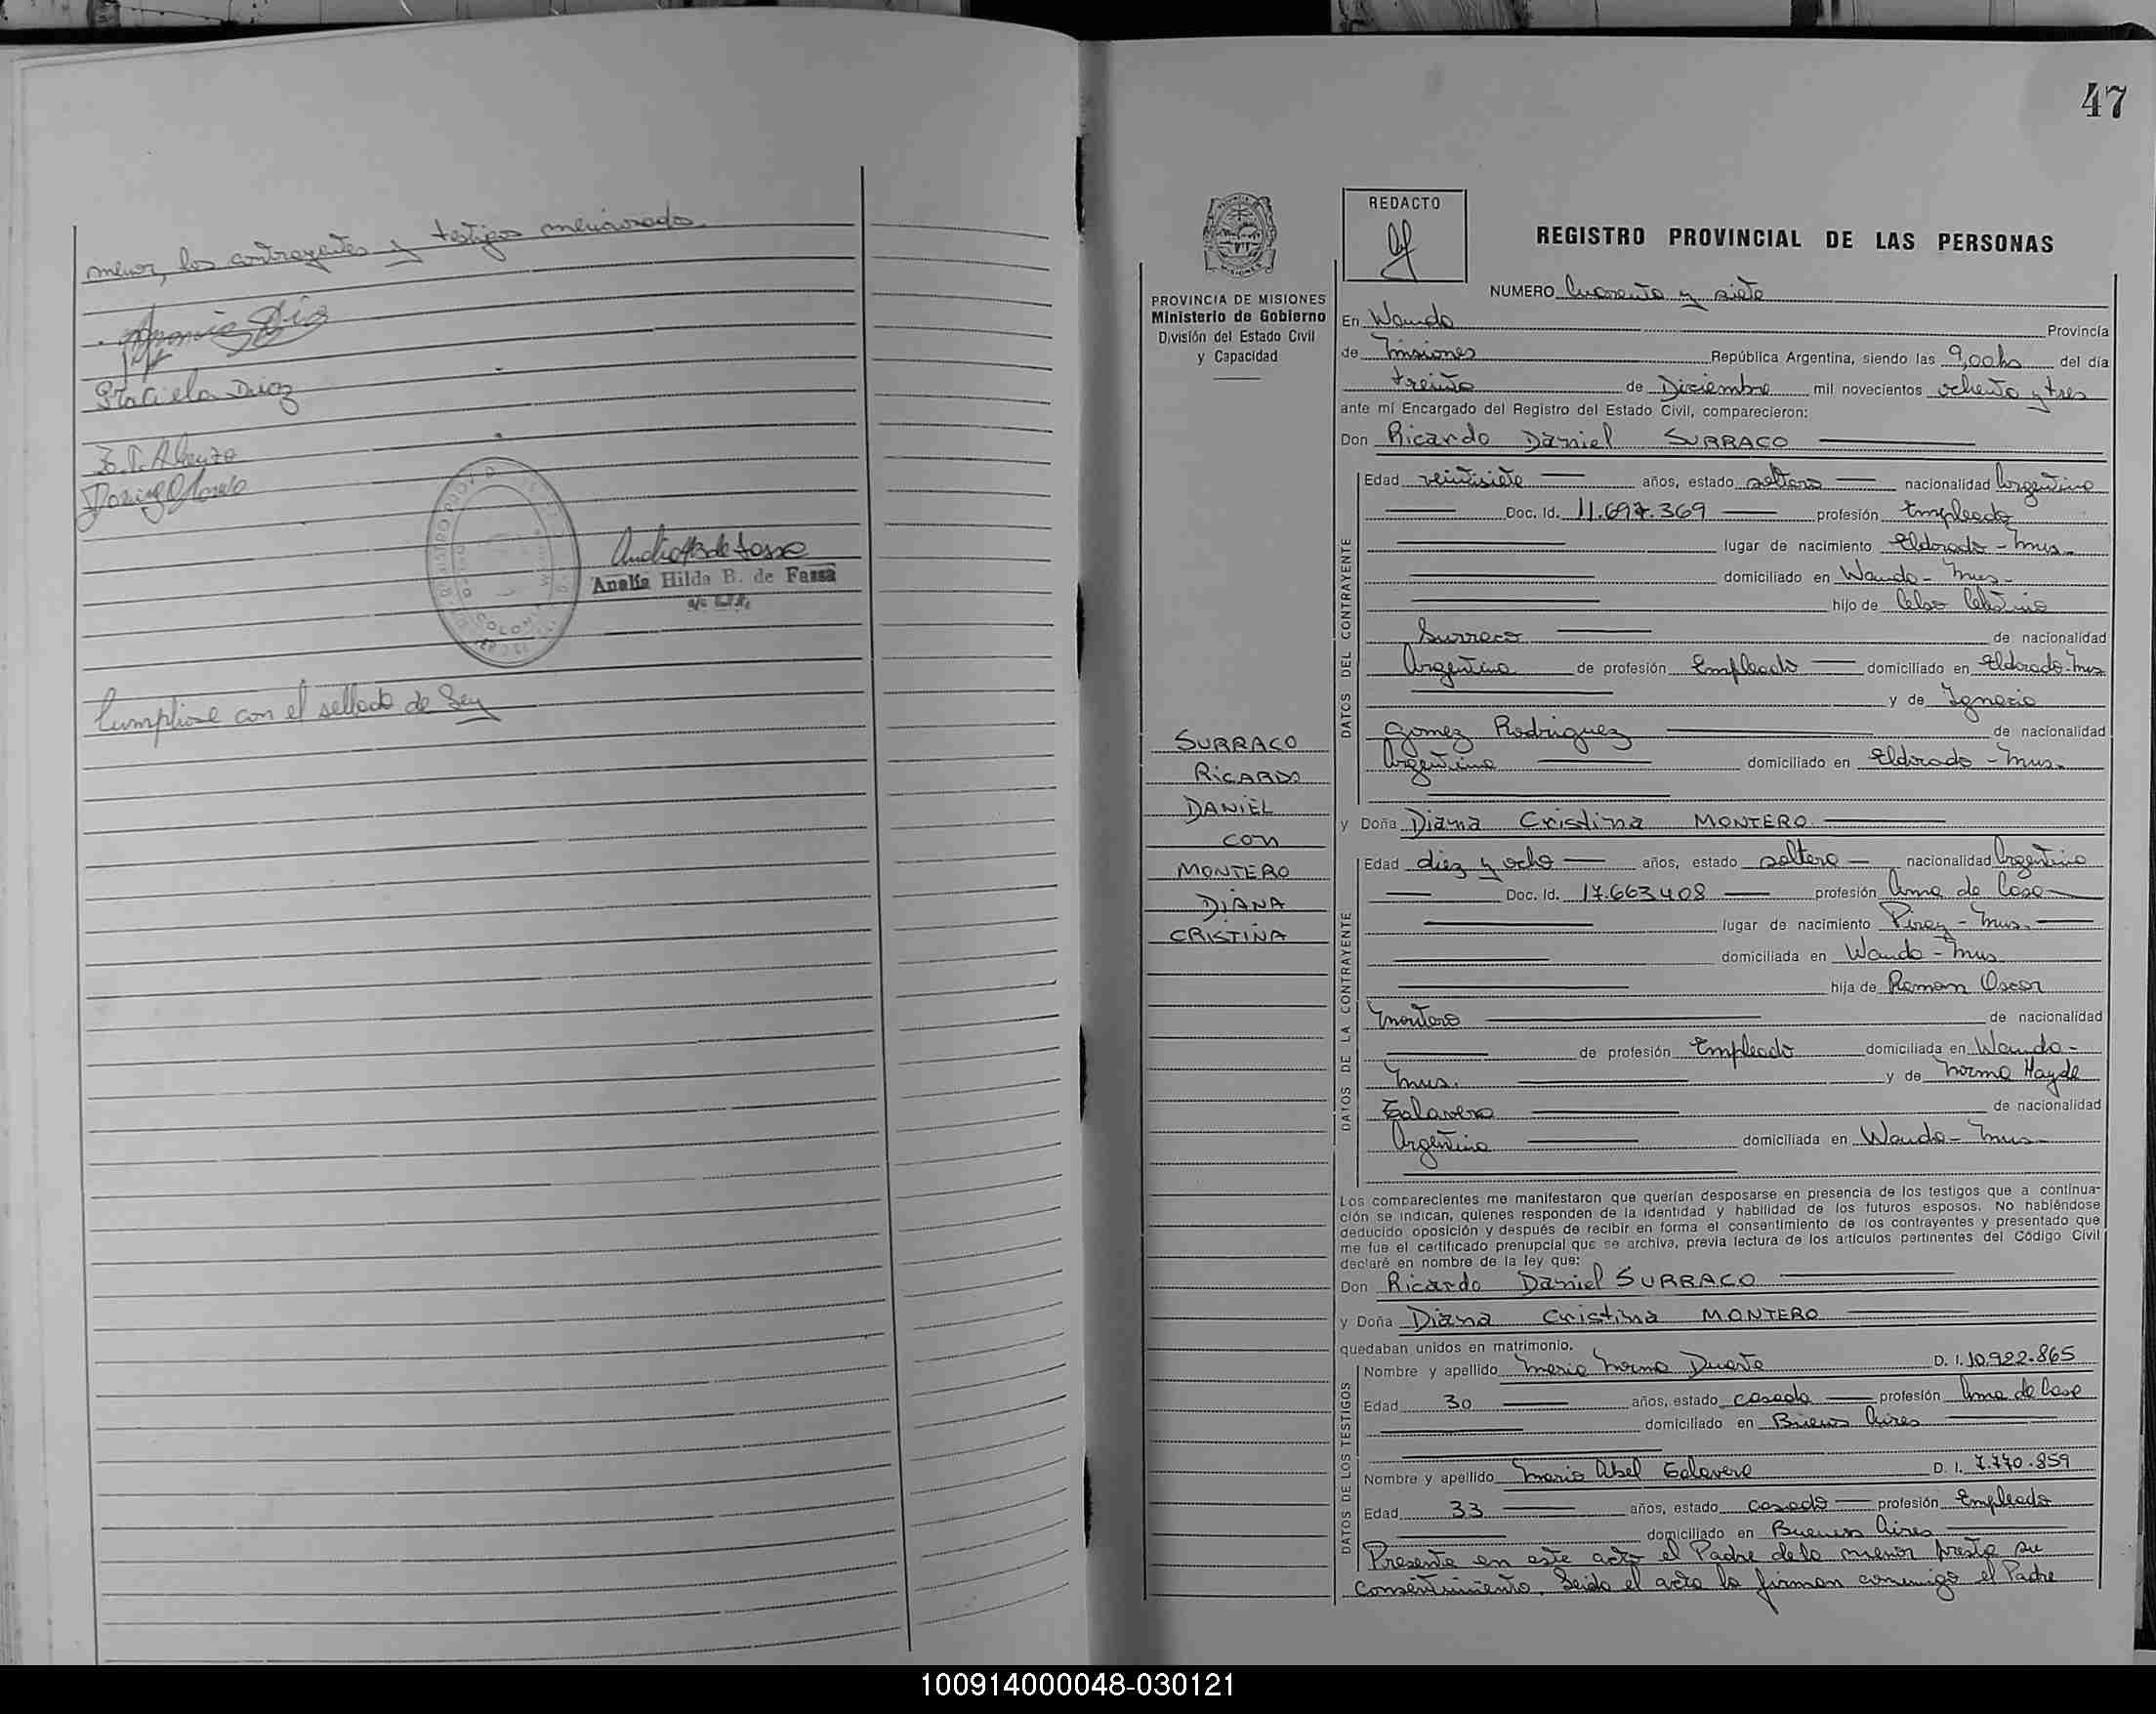 menor, los contrayentes y testigos mencionado
Graciela Diaz
Analía Hilda B. de Fassa
Cumpliose con el sellado de Ley
47
REDACTO
REGISTRO PROVINCIAL DE LAS PERSONAS
PROVINCIA DE MISIONES
Ministerio de Gobierno
División del Estado Civil
y Capacidad
SURRACO
RICARDO
DANIEL
CON
MONTERO
DIANA
CRISTINA
NUMERO Cuarenta y siete
En Wanda Provincia
de Misiones República Argentina, siendo las 9,00hs del día
treinta de Diciembre mil novecientos ochenta y tres
ante mí Encargado del Registro del Estado Civil, comparecieron:
Don Ricardo Daniel SURRACO
DATOS DEL CONTRAYENTE
Edad veintisiete años, estado soltero nacionalidad Argentino
Doc. Id. 11.697.369 profesión Empleado
lugar de nacimiento Eldorado - Mnes.
domiciliado en Wanda - Mnes -
hijo de Celso Celestino
Surraco de nacionalidad
Argentina de profesión Empleado domiciliado en Eldorado-Mnes
y de Ignacia
Gomez Rodriguez de nacionalidad
Argentina domiciliado en Eldorado - Mnes.
y Doña Diana Cristina MONTERO
DATOS DE LA CONTRAYENTE
Edad diez y ocho años, estado soltera nacionalidad Argentina
Doc. Id. 17.663.408 profesión Ama de Casa
lugar de nacimiento Piray - Mnes.
domiciliada en Wanda - Mnes
hija de Ramon Oscar
Montero de nacionalidad
de profesión Empleado domiciliada en Wanda -
Mnes. y de Norma Hayde
Galavera de nacionalidad
Argentina domiciliada en Wanda - Mnes
Los comparecientes me manifestaron que querían desposarse en presencia de los testigos que a continua-
ción se indican, quienes responden de la identidad y habilidad de los futuros esposos. No habiéndose
deducido oposición y después de recibir en forma el consentimiento de los contrayentes y presentado que
me fue el certificado prenupcial que se archiva, previa lectura de los artículos pertinentes del Código Civil
declaré en nombre de la ley que:
Don Ricardo Daniel SURRACO
y Doña Diana Cristina MONTERO
quedaban unidos en matrimonio.
DATOS DE LOS TESTIGOS
Nombre y apellido Maria Norma Duarte D. I. 10.922.865
Edad 30 años, estado casada profesión Ama de Casa
domiciliado en Buenos Aires
Nombre y apellido Mario Abel Galavera D. I. 7.770.859
Edad 33 años, estado casado profesión Empleado
domiciliado en Buenos Aires
Presente en este acto el Padre de la menor presta su
Consentimiento, Leida el acta la firman conmigo el Padre
100914000048-030121